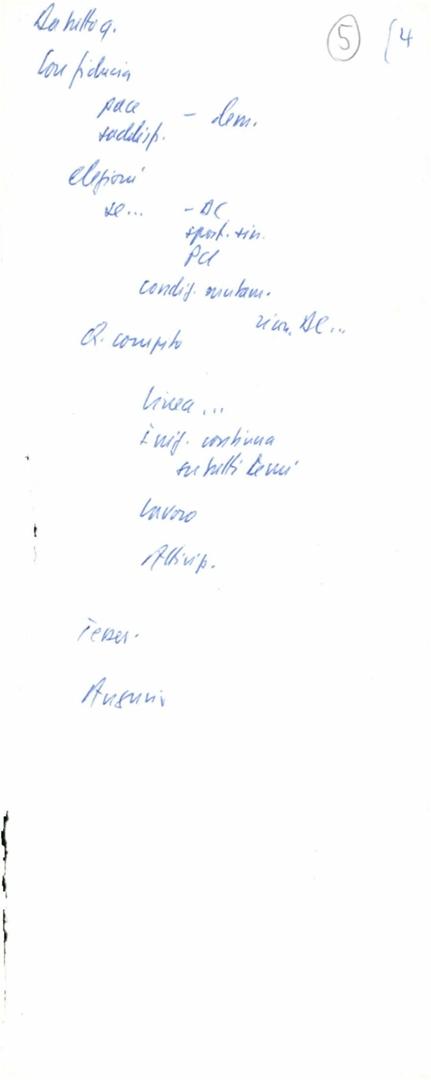 Da tutto q.
5 (4
Con fiducia
pace - dem.
soddisf.
elezioni
se... - DC
spost. sin.
PCI
condiz. mutam.
DC...
Q. compito
Linea...
Iniz. continua
su tutti temi
Lavoro
Attivip.
Tesser.
Auguri